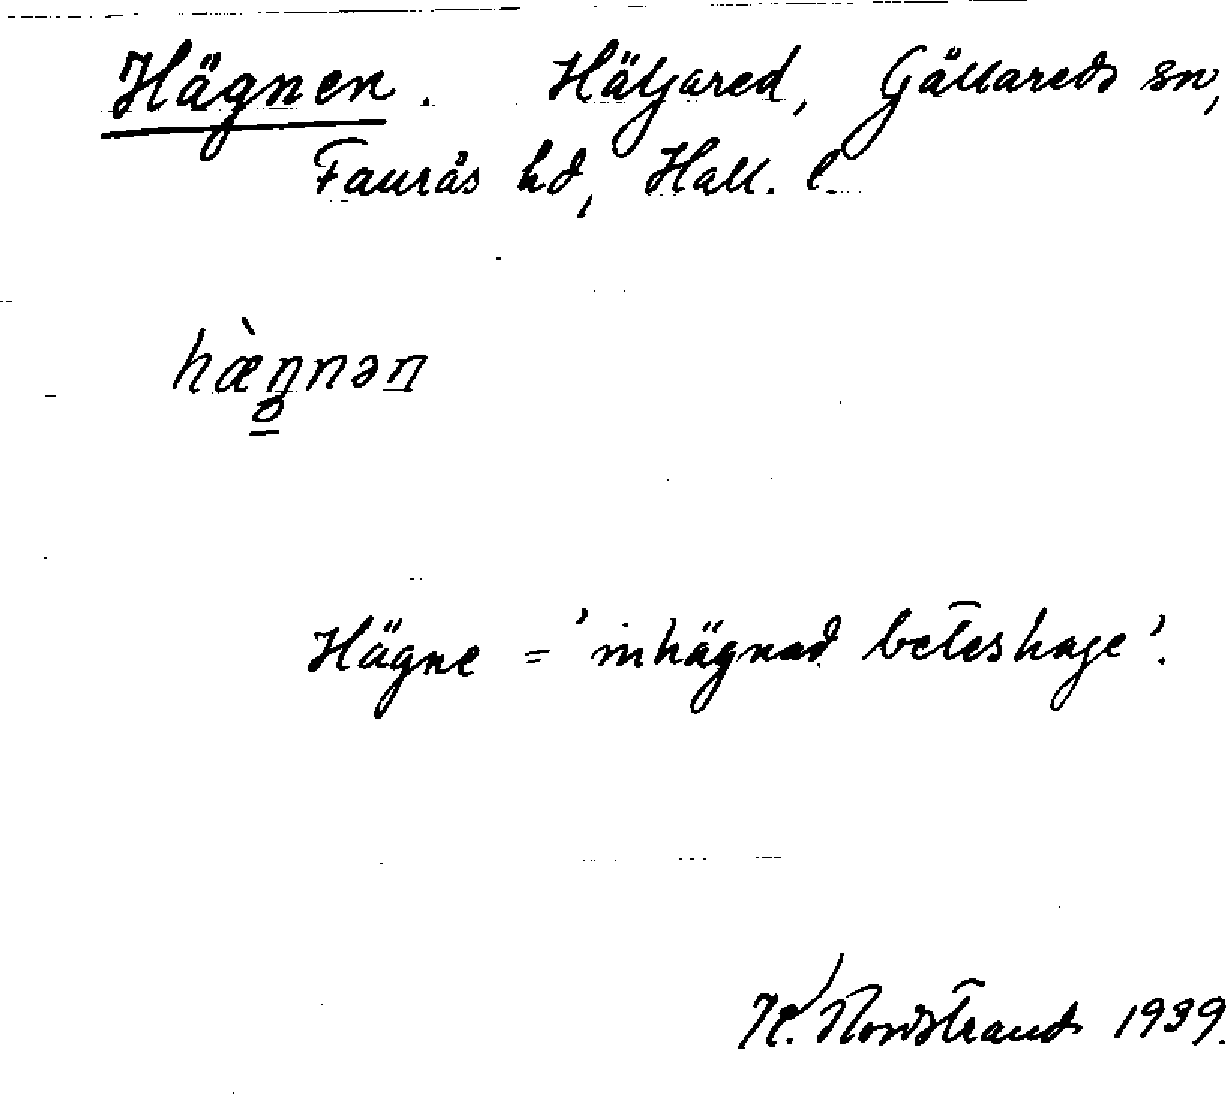 Hägnen. Häljared, Gällareds sn,
Faurås hd, Hall. l.
hæ̀ŋnən
Hägne = 'inhägnad beteshage'.
K. Nordstrand 1939.